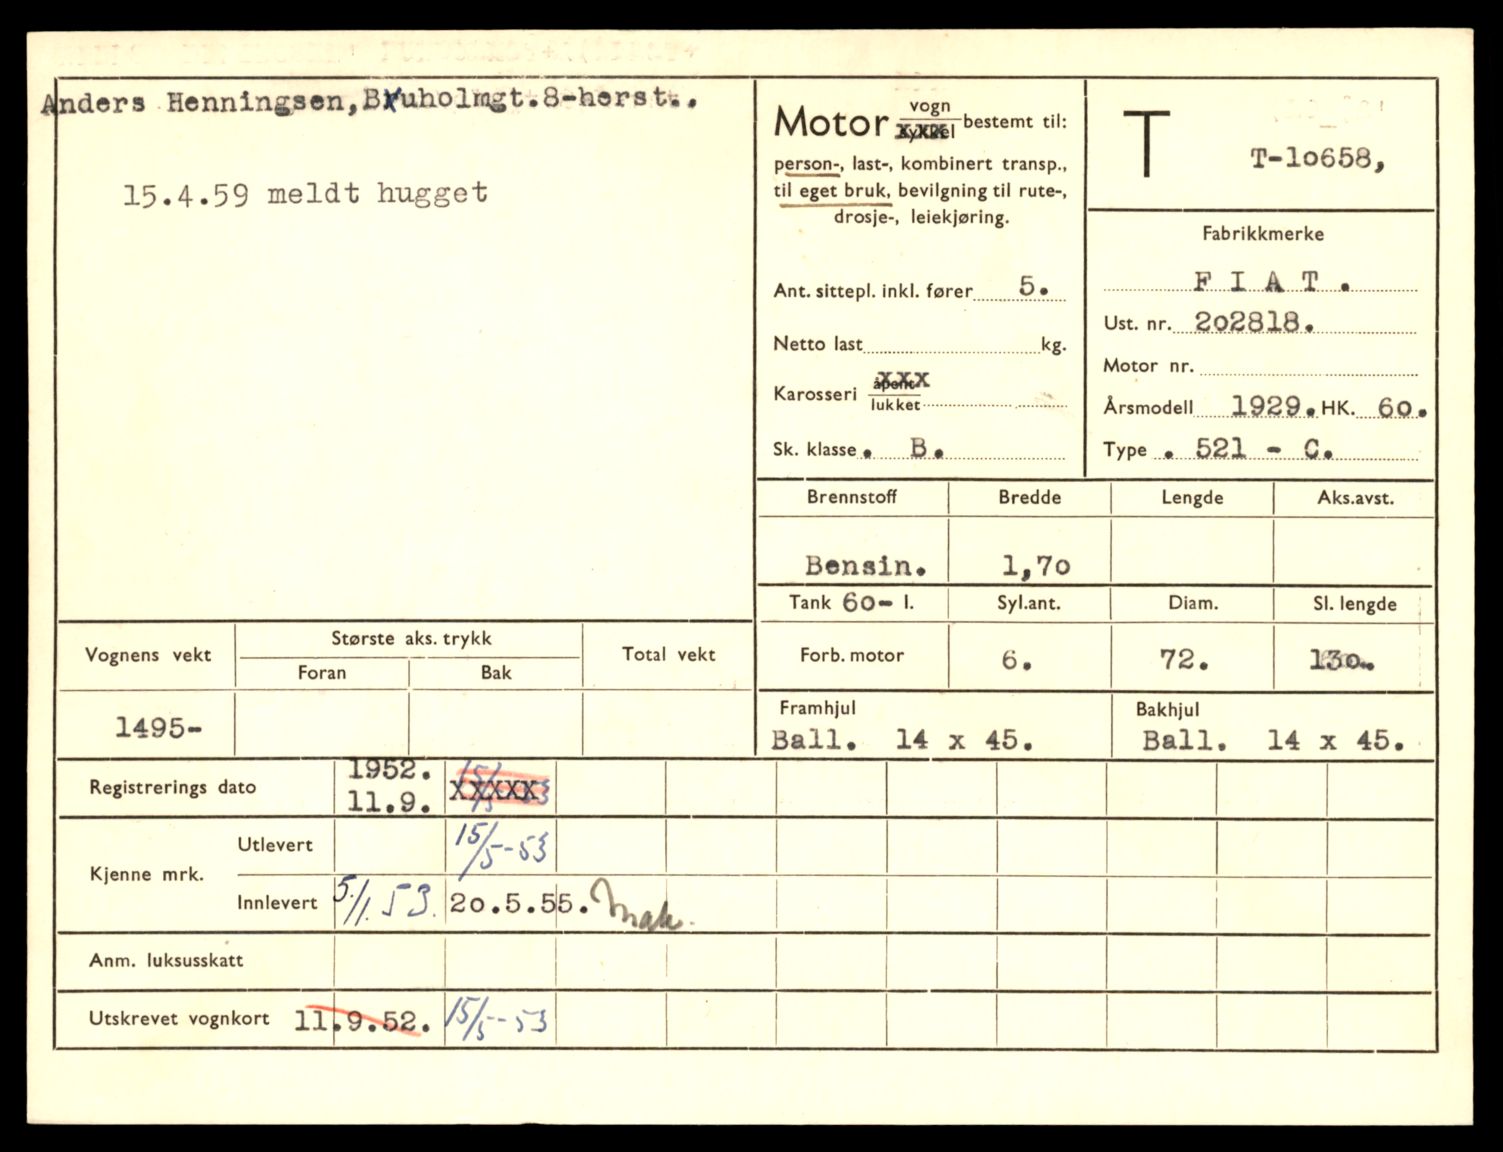 Anders Henningsen, Bruholmgt.8-herst..
15.4.59 meldt hugget
Motor vogn bestemt til:
person-, last-, kombinert transp.,
til eget bruk, bevilgning til rute-,
drosje-, leiekjøring.
Ant. sittepl. inkl. fører 5.
Netto last kg.
Karosseri åpent
lukket
Sk. klasse . B.
T
T-10658,
Fabrikkmerke
F I A T .
Ust. nr. 202818.
Motor nr.
Årsmodell 1929. HK. 60.
Type . 521 - C.
Brennstoff Bredde Lengde Aks.avst.
Bensin. 1,70
Tank 60- l. Syl.ant. Diam. Sl. lengde
Forb. motor 6. 72. 130.
Framhjul Bakhjul
Ball. 14 x 45. Ball. 14 x 45.
Vognens vekt Største aks. trykk Total vekt
Foran Bak
1495-
Registrerings dato 1952.
11.9. XXXXX
Kjenne mrk.
Utlevert 15/5-53
Innlevert 5/1.53. 20.5.55.
Anm. luksusskatt
Utskrevet vognkort 11.9.52. 15/5-53